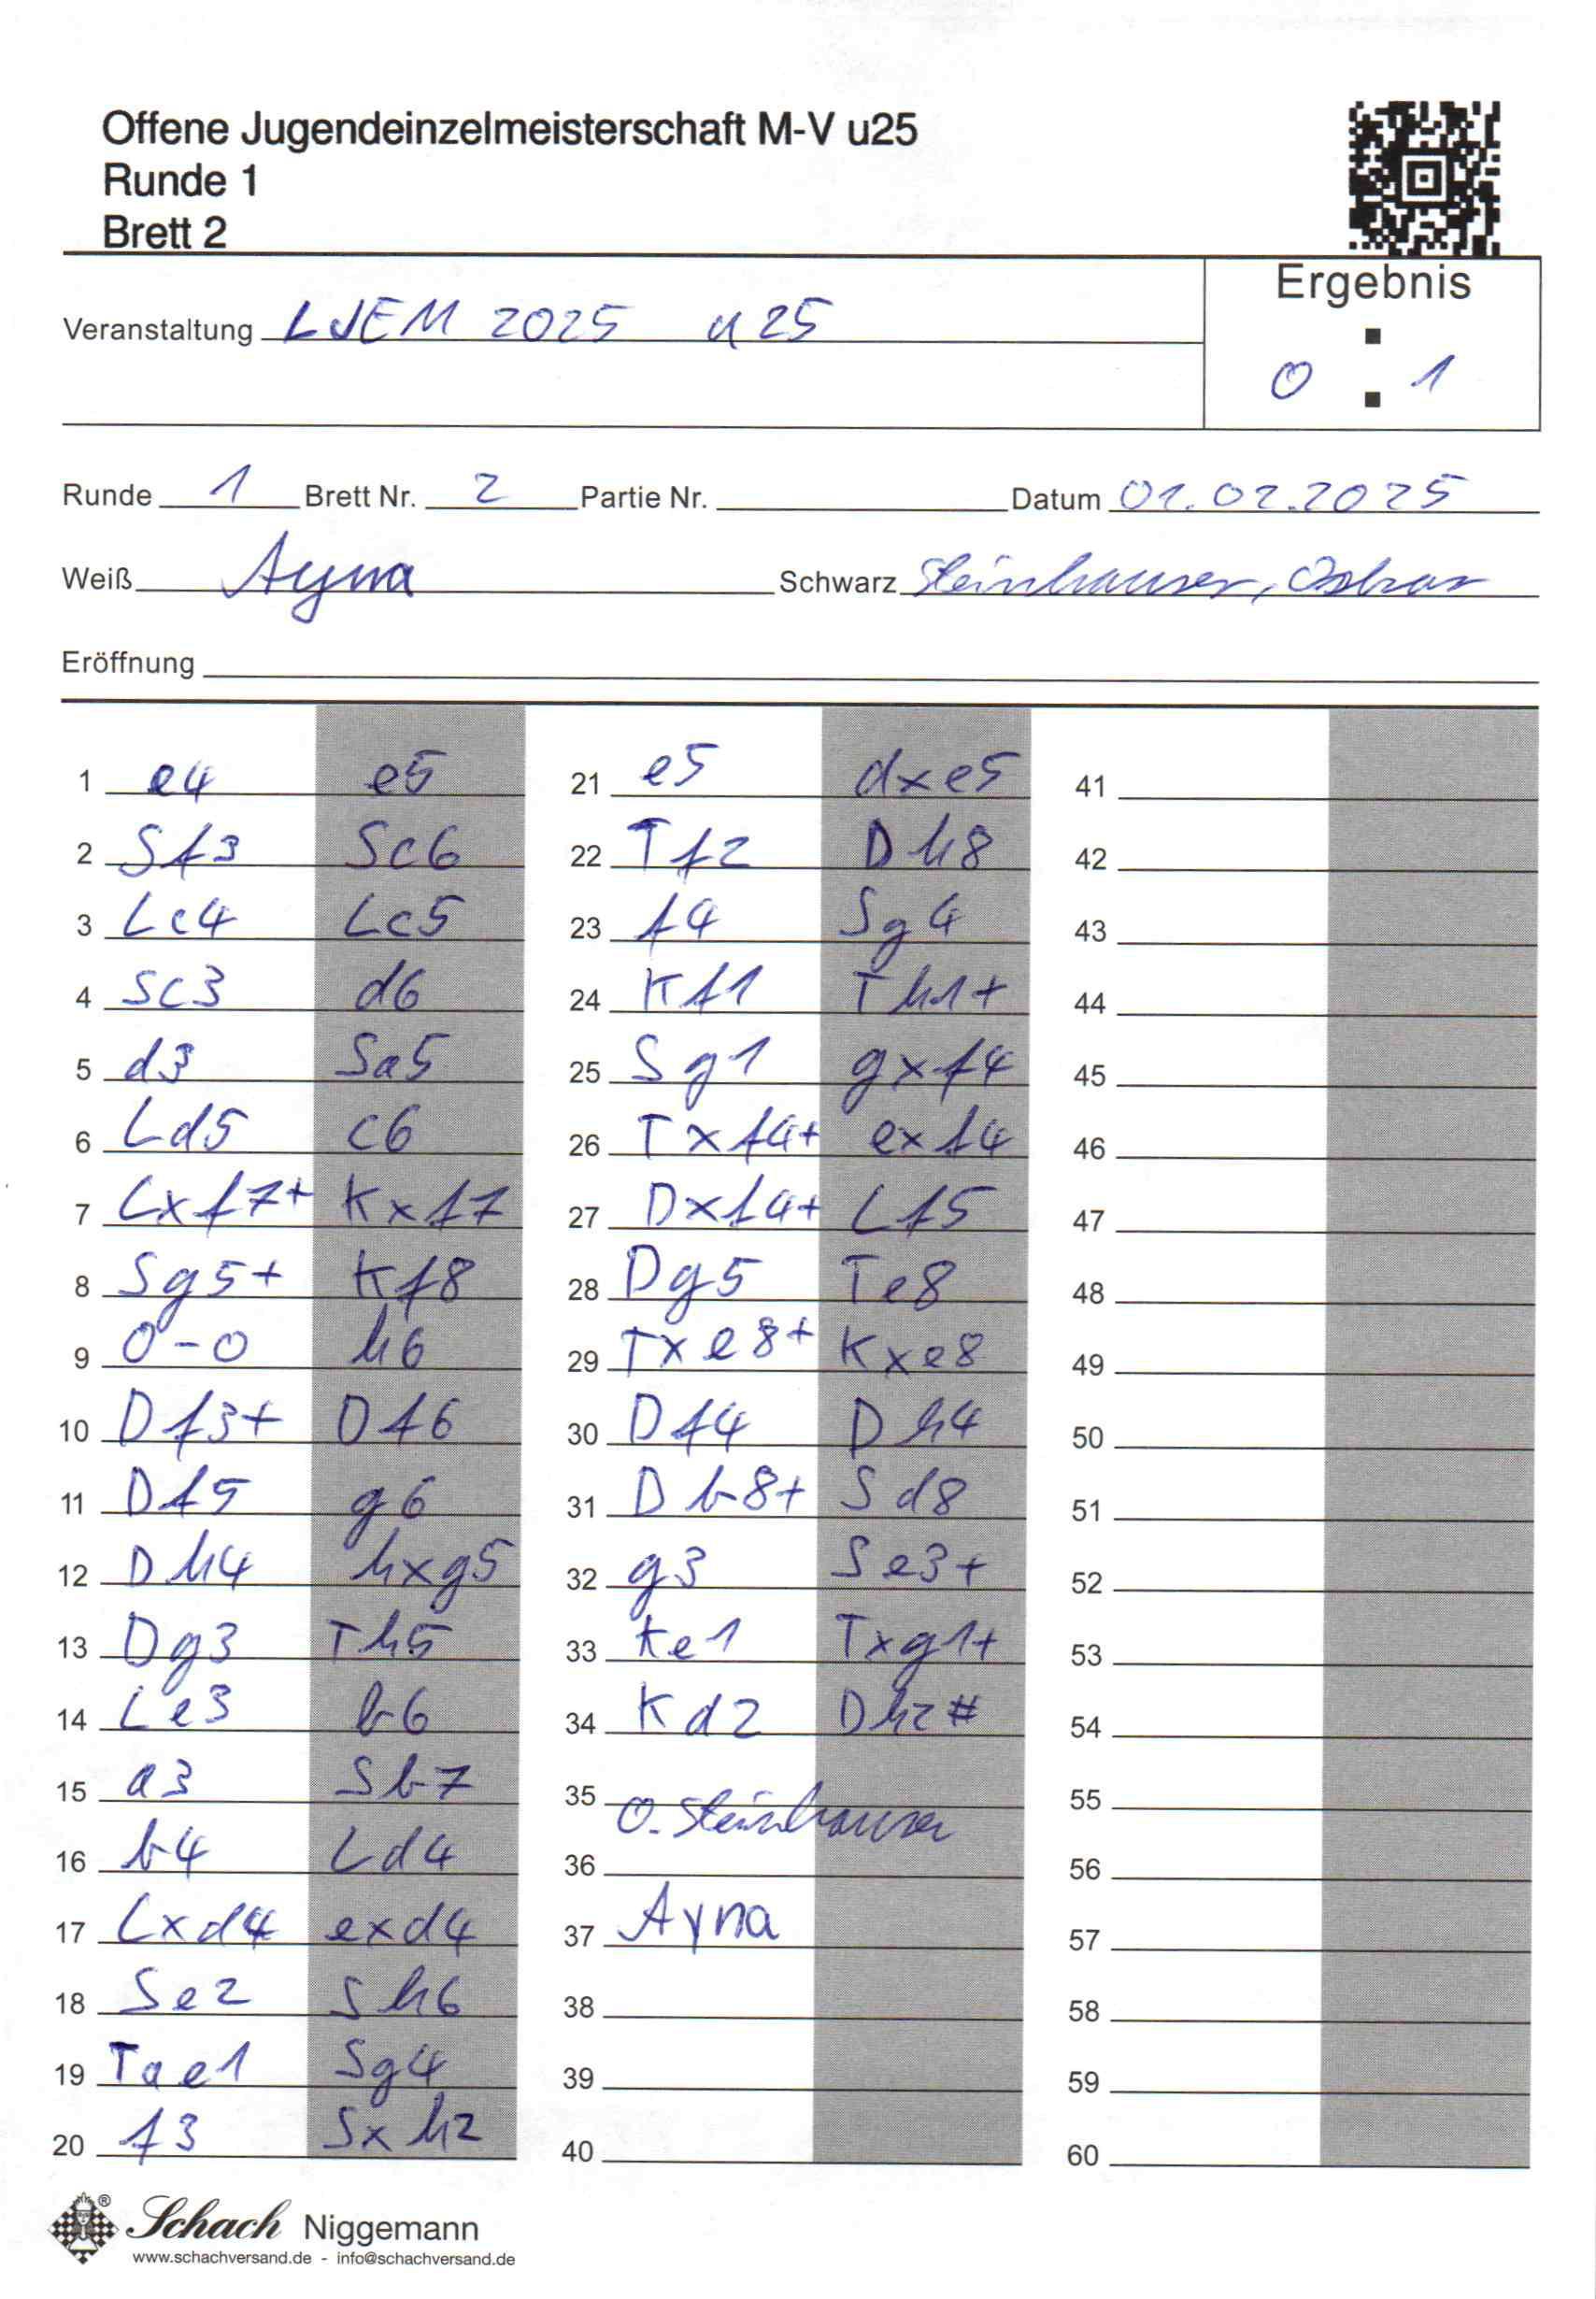 Offene Jugendeinzelmeisterschaft M-V u25
Runde 1
Brett 2
Ergebnis
Veranstaltung LJEM 2025 u25
0 : 1
Runde 1 Brett Nr. 2 Partie Nr. Datum 01.02.2025
Weiß Ayna Schwarz Steinhauser, Oskar
Eröffnung
1 e4 e5
2 Sf3 Sc6
3 Lc4 Lc5
4 Sc3 d6
5 d3 Sa5
6 Ld5 c6
7 Lxf7+ Kxf7
8 Sg5+ Kf8
9 0-0 h6
10 Df3+ Df6
11 Df5 g6
12 Dh4 hxg5
13 Dg3 Th5
14 Le3 b6
15 a3 Sb7
16 b4 Ld4
17 Lxd4 exd4
18 Se2 Sh6
19 Tae1 Sg4
20 f3 Sxh2
21 e5 dxe5
22 Tf2 Dh8
23 f4 Sg4
24 Kf1 Th1+
25 Sg1 gxf4
26 Txf4+ exf4
27 Dxf4+ Lf5
28 Dg5 Te8
29 Txe8+ Kxe8
30 Df4 Dh4
31 Db8+ Sd8
32 g3 Se3+
33 Ke1 Txg1+
34 Kd2 Dh2#
35 O. Steinhauser
36
37 Ayna
38
39
40
41
42
43
44
45
46
47
48
49
50
51
52
53
54
55
56
57
58
59
60
Schach Niggemann
www.schachversand.de - info@schachversand.de